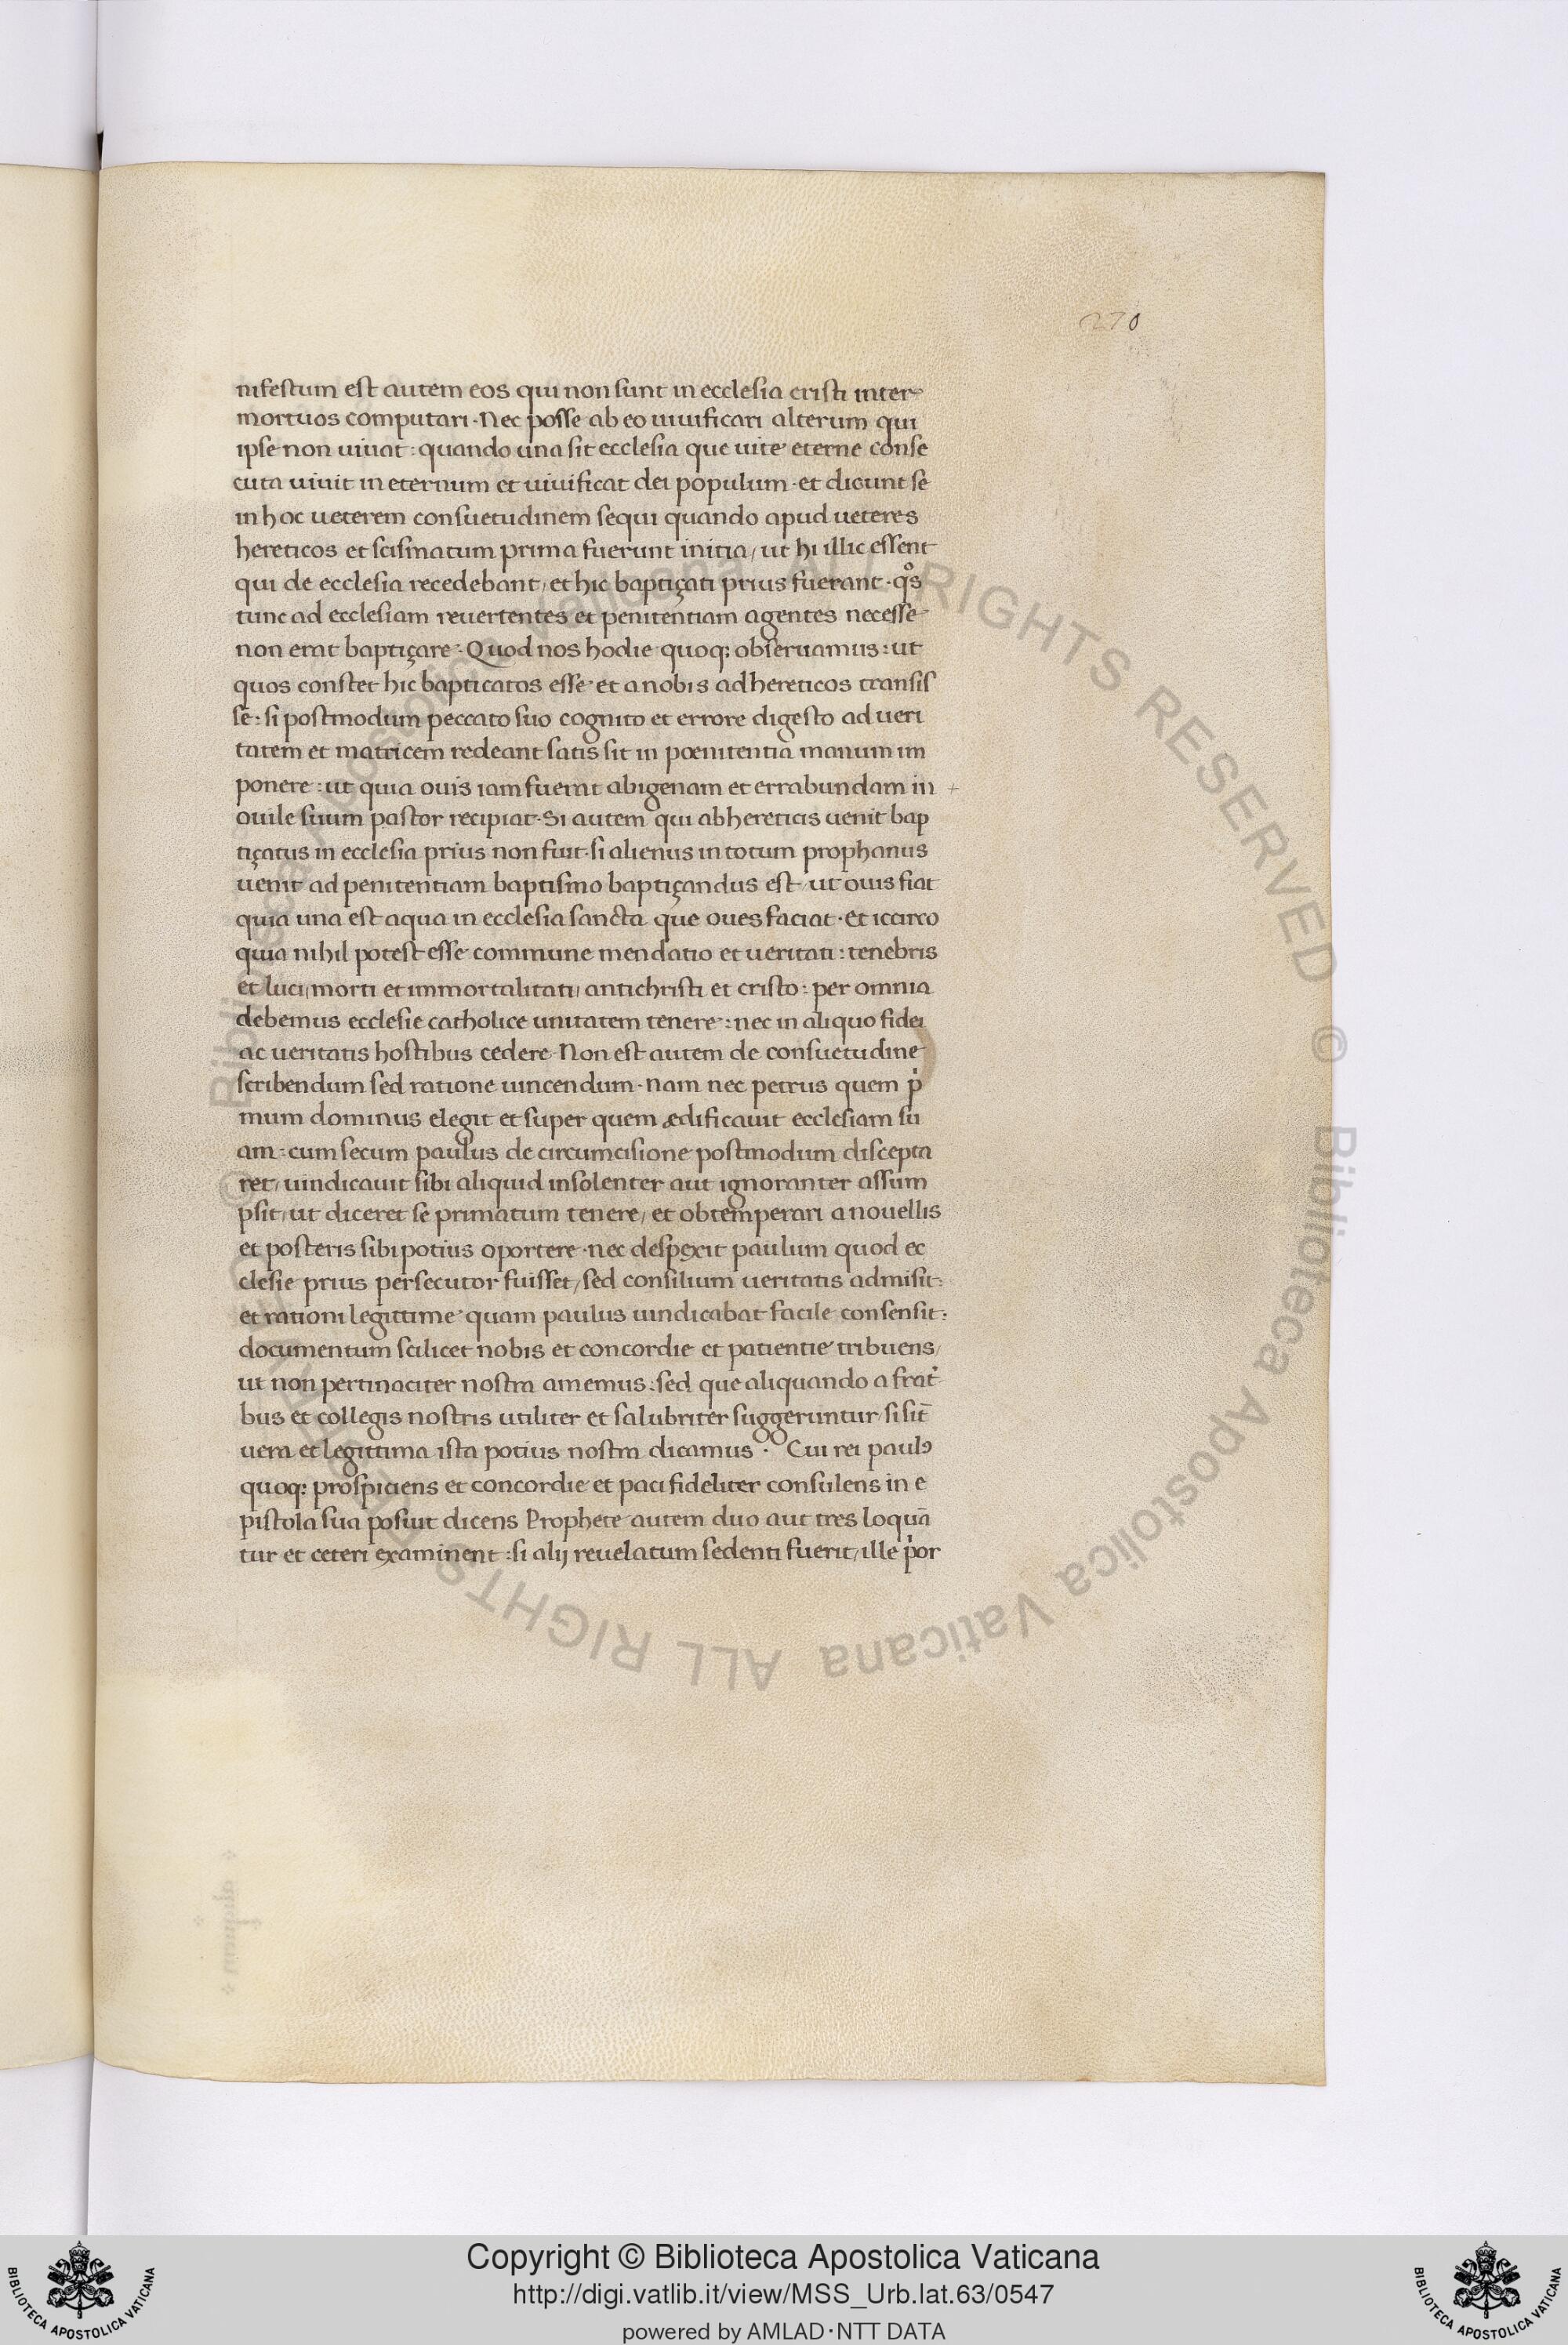 270
nifestum est autem eos qui non sunt in ecclesia cristi inter
mortuos computari · Nec posse ab eo uiuificari alterum qui
ipse non uiuat : quando una sit ecclesia que uite eterne conse
cuta uiuit in eternum et uiuificat dei populum · et dicunt se
in hoc ueterem consuetudinem sequi quando apud ueteres
hereticos et scismatum prima fuerunt initia / ut hi illic essent
qui de ecclesia recedebant / et hic baptiçati prius fuerant · qͦs
tunc ad ecclesiam reuertentes et penitentiam agentes necesse
non erat baptiçare · Quod nos hodie quoq; obseruamus : ut
quos constet hic bapticatos esse et a nobis ad hereticos transis
se : si postmodum peccato suo cognito et errore digesto ad ueri
tatem et matricem redeant satis sit in pœnitentia manum im
ponere : ut quia ouis iam fuerat abigenam et errabundam in +
ouile suum pastor recipiat · Si autem qui ab hereticis uenit bap
tiçatus in ecclesia prius non fuit · si alienus in totum prophanus
uenit ad penitentiam baptismo baptiçandus est / ut ouis fiat
quia una est aqua in ecclesia sancta que oues faciat · Et iccirco
quia nihil potest esse commune mendatio et ueritati : tenebris
et luci / morti et immortalitati / antichristi et cristo : per omnia
debemus ecclesie catholice unitatem tenere : nec in aliquo fidei
ac ueritatis hostibus cedere · Non est autem de consuetudine
scribendum sed ratione uincendum · Nam nec petrus quem p̍
mum dominus elegit et super quem ædificauit ecclesiam su
am : cum secum paulus de circumcisione postmodum discepta
ret / uindicauit sibi aliquid insolenter aut ignoranter assum
psit / ut diceret se primatum tenere / et obtemperari a nouellis
et posteris sibi potius oportere · nec despexit paulum quod ec
clesie prius persecutor fuisset / sed consilium ueritatis admisit :
et rationi legittime quam paulus uindicabat facile consensit :
documentum scilicet nobis et concordie et patientie tribuens /
ut non pertinaciter nostra amemus : sed que aliquando a frat̍
bus et collegis nostris utiliter et salubriter suggeruntur / si sīt
uera et legittima ista potius nostra dicamus · Cui rei paulꝰ
quoq; prospiciens et concordie et paci fideliter consulens in e
pistola sua posuit dicens Prophete autem duo aut tres loquā
tur et ceteri examinent : si alij reuelatum sedenti fuerit / ille p̍or
© Biblioteca Apostolica Vaticana ALL RIGHTS RESERVED © Biblioteca Apostolica Vaticana ALL RIGHTS RESERVED
Copyright © Biblioteca Apostolica Vaticana
http://digi.vatlib.it/view/MSS_Urb.lat.63/0547
powered by AMLAD·NTT DATA
BIBLIOTECA APOSTOLICA VATICANA
BIBLIOTECA APOSTOLICA VATICANA